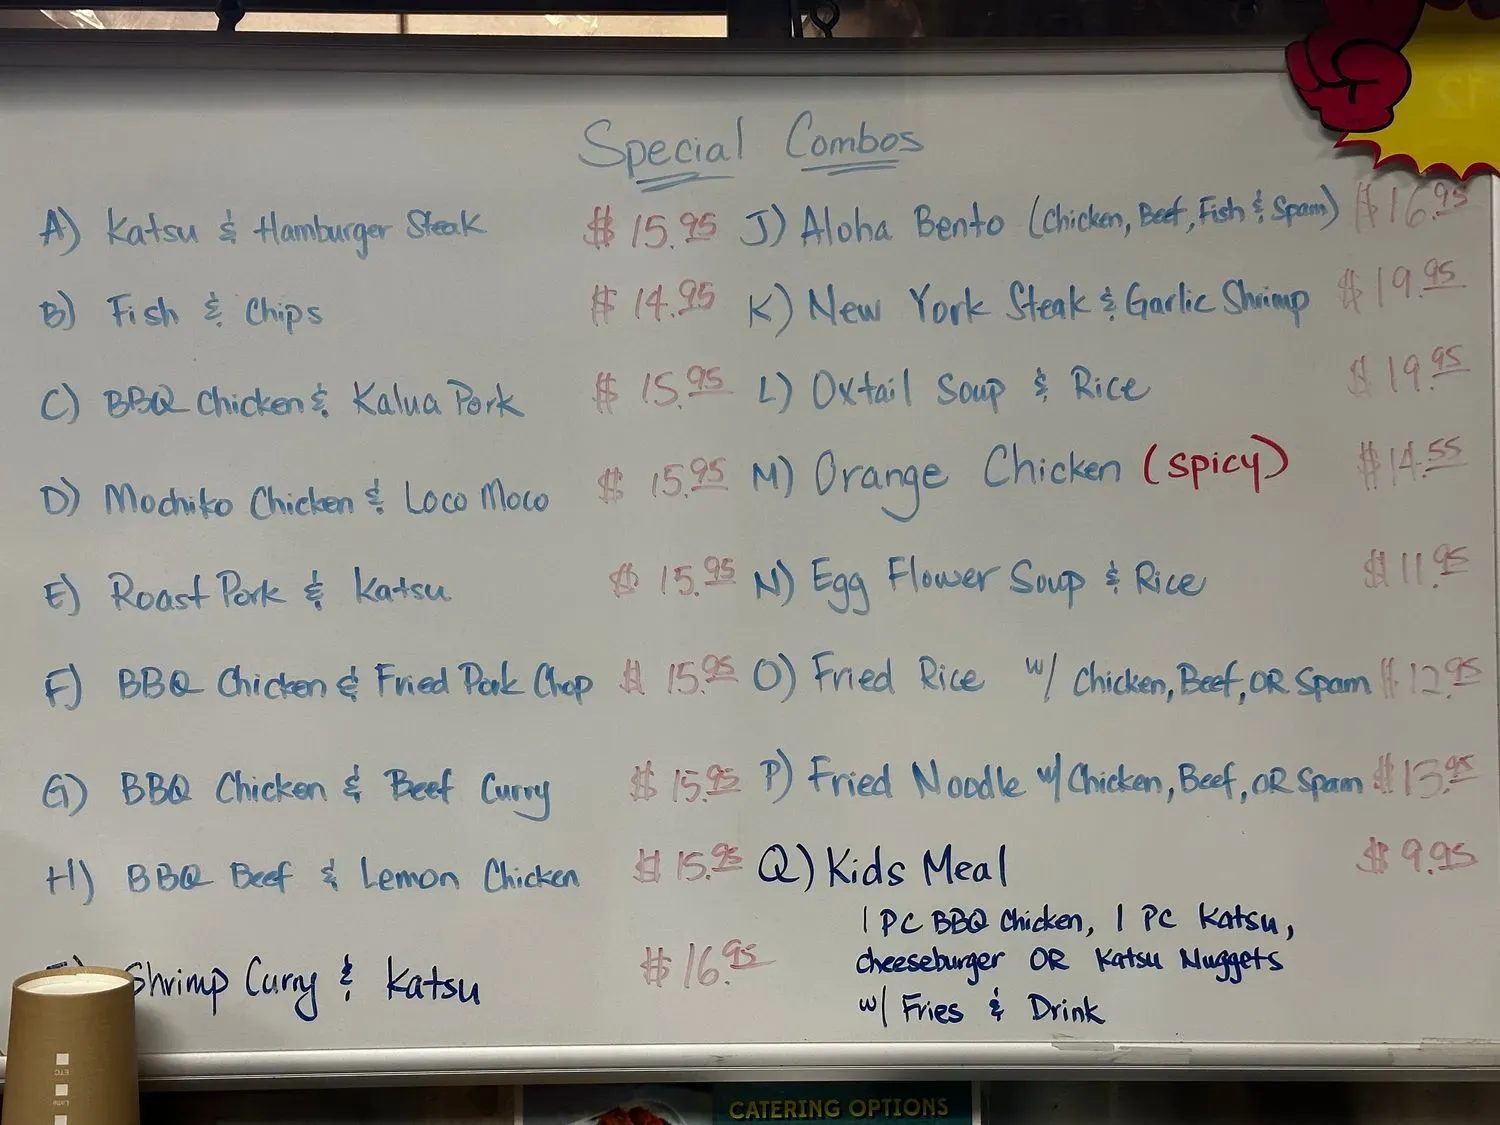 Special Combos
A) Katsu & Hamburger Steak $15.95
B) Fish & Chips $14.95
C) BBQ Chicken & Kalua Pork $15.95
D) Mochiko Chicken & Loco Moco $15.95
E) Roast Pork & Katsu $15.95
F) BBQ Chicken & Fried Pork Chop $15.95
G) BBQ Chicken & Beef Curry $15.95
H) BBQ Beef & Lemon Chicken $15.95
Shrimp Curry & Katsu $16.95
J) Aloha Bento (Chicken, Beef, Fish & Spam) $16.95
K) New York Steak & Garlic Shrimp $19.95
L) Oxtail Soup & Rice $19.95
M) Orange Chicken (spicy) $14.55
N) Egg Flower Soup & Rice $11.95
O) Fried Rice w/ Chicken, Beef, OR Spam $12.95
P) Fried Noodle w/ Chicken, Beef, OR Spam $13.95
Q) Kids Meal $9.95
1 PC BBQ Chicken, 1 PC Katsu,
cheeseburger OR Katsu Nuggets
w/ Fries & Drink
CATERING OPTIONS